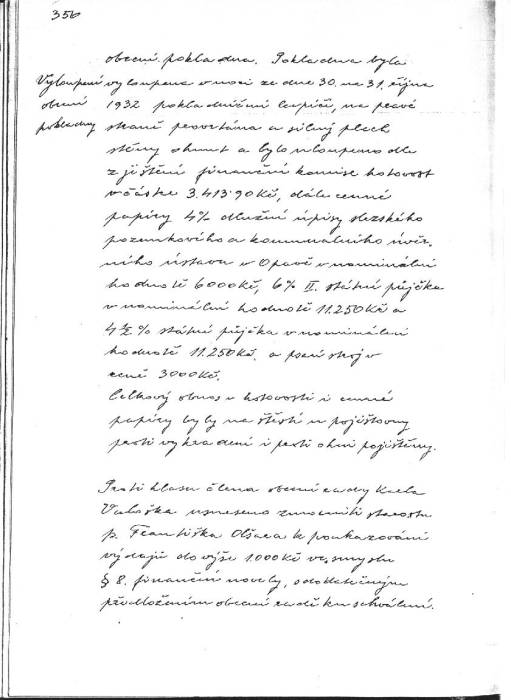 356
obecní pokladna. Pokladna byla
Vyloupení vyloupena v noci ze dne 30. na 31. října
obecní 1932 pokladničními lupiči, na pravé
pokladny straně provrtána a silný plech
stěny ohnut a bylo uloupeno dle
zjištění finanční komise hotovost
v částce 3.413·90 Kč, dále cenné
papíry 4% dlužní úpisy slezského
pozemkového a komunálního úvěr-
ního ústavu v Opavě v nominální
hodnotě 6000 Kč, 6% II. státní půjčka
v nominální hodnotě 11.250 Kč a
4½% státní půjčka v nominální
hodnotě 11.250 Kč. a psací stroj v
ceně 3000 Kč.
Celkový obnos v hotovosti i cenné
papíry byly na štěstí u pojišťovny
proti vykradení i proti ohni pojištěny.
Proti hlasu člena obecní rady Karla
Valoška usneseno zmocniti starostu
p. Františka Olšara k poukazování
výdajů do výše 1000 Kč ve smyslu
§ 8. finanční novely, s dodatečným
předložením obecní radě ku schválení.